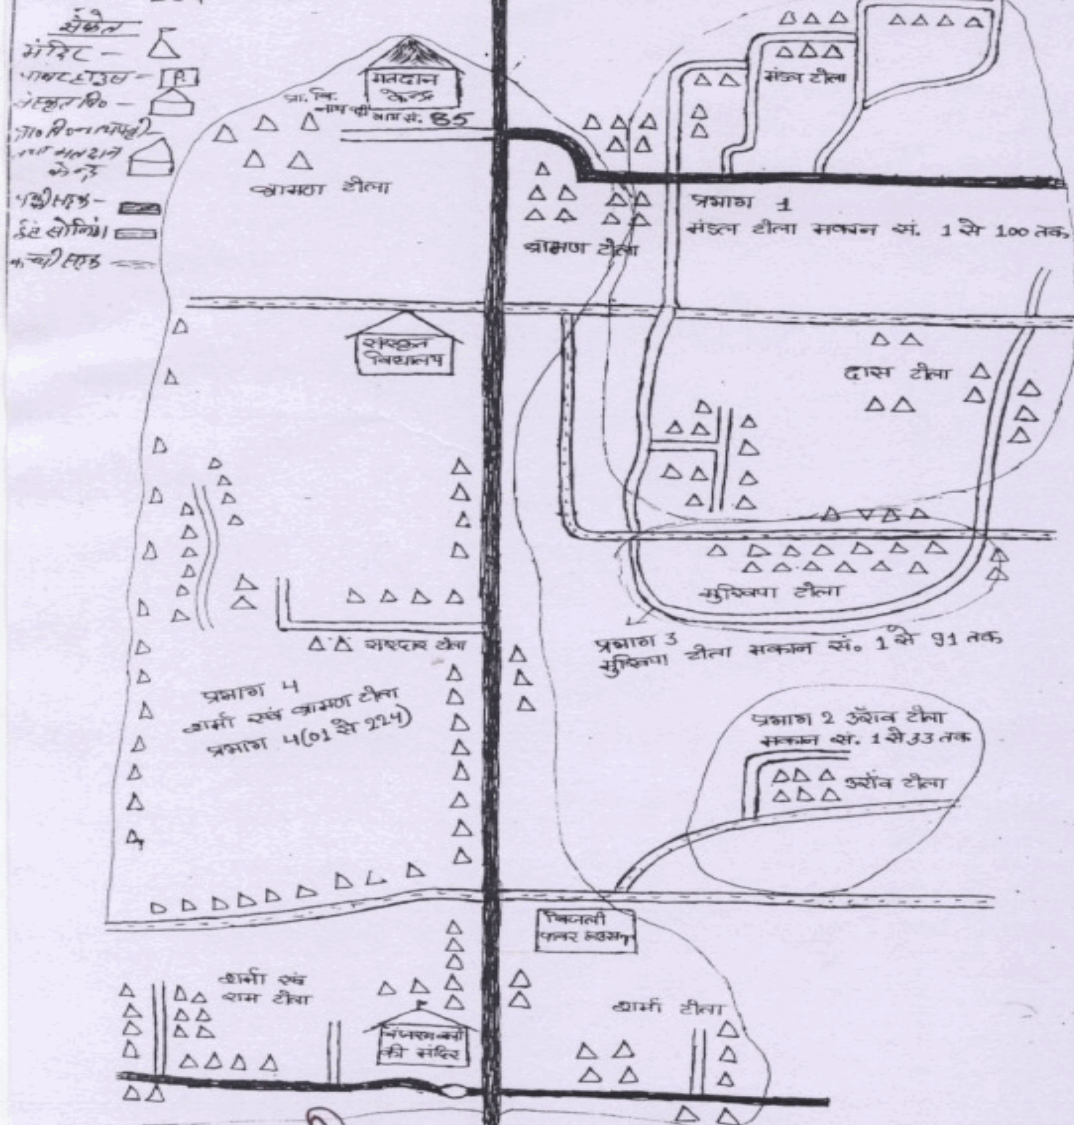 संकेत
मंदिर -
पावर हाउस -
संस्कृत वि० -
तथा मतदान
केन्द्र
पक्की सड़क -
ईट सोलिंग
कच्ची सड़क
मतदान
केन्द्र
प्रा. वि.
भाग सं. 85
ब्रामण टोला
मंडल टोला
ब्रामण टोला
प्रभाग 1
मंडल टोला मकान सं. 1 से 100 तक
संस्कृत
विद्यालय
दास टोला
मुखिया टोला
प्रभाग 3
मुखिया टोला मकान सं. 1 से 91 तक
सरदार टोला
प्रभाग 4
शर्मा एवं ब्रामण टोला
प्रभाग 4(01 से 224)
प्रभाग 2 उराँव टोला
मकान सं. 1 से 33 तक
उराँव टोला
बिजली
पावर हाउस
शर्मा एवं
राम टोला
बजरंगबली
की मंदिर
शर्मा टोला